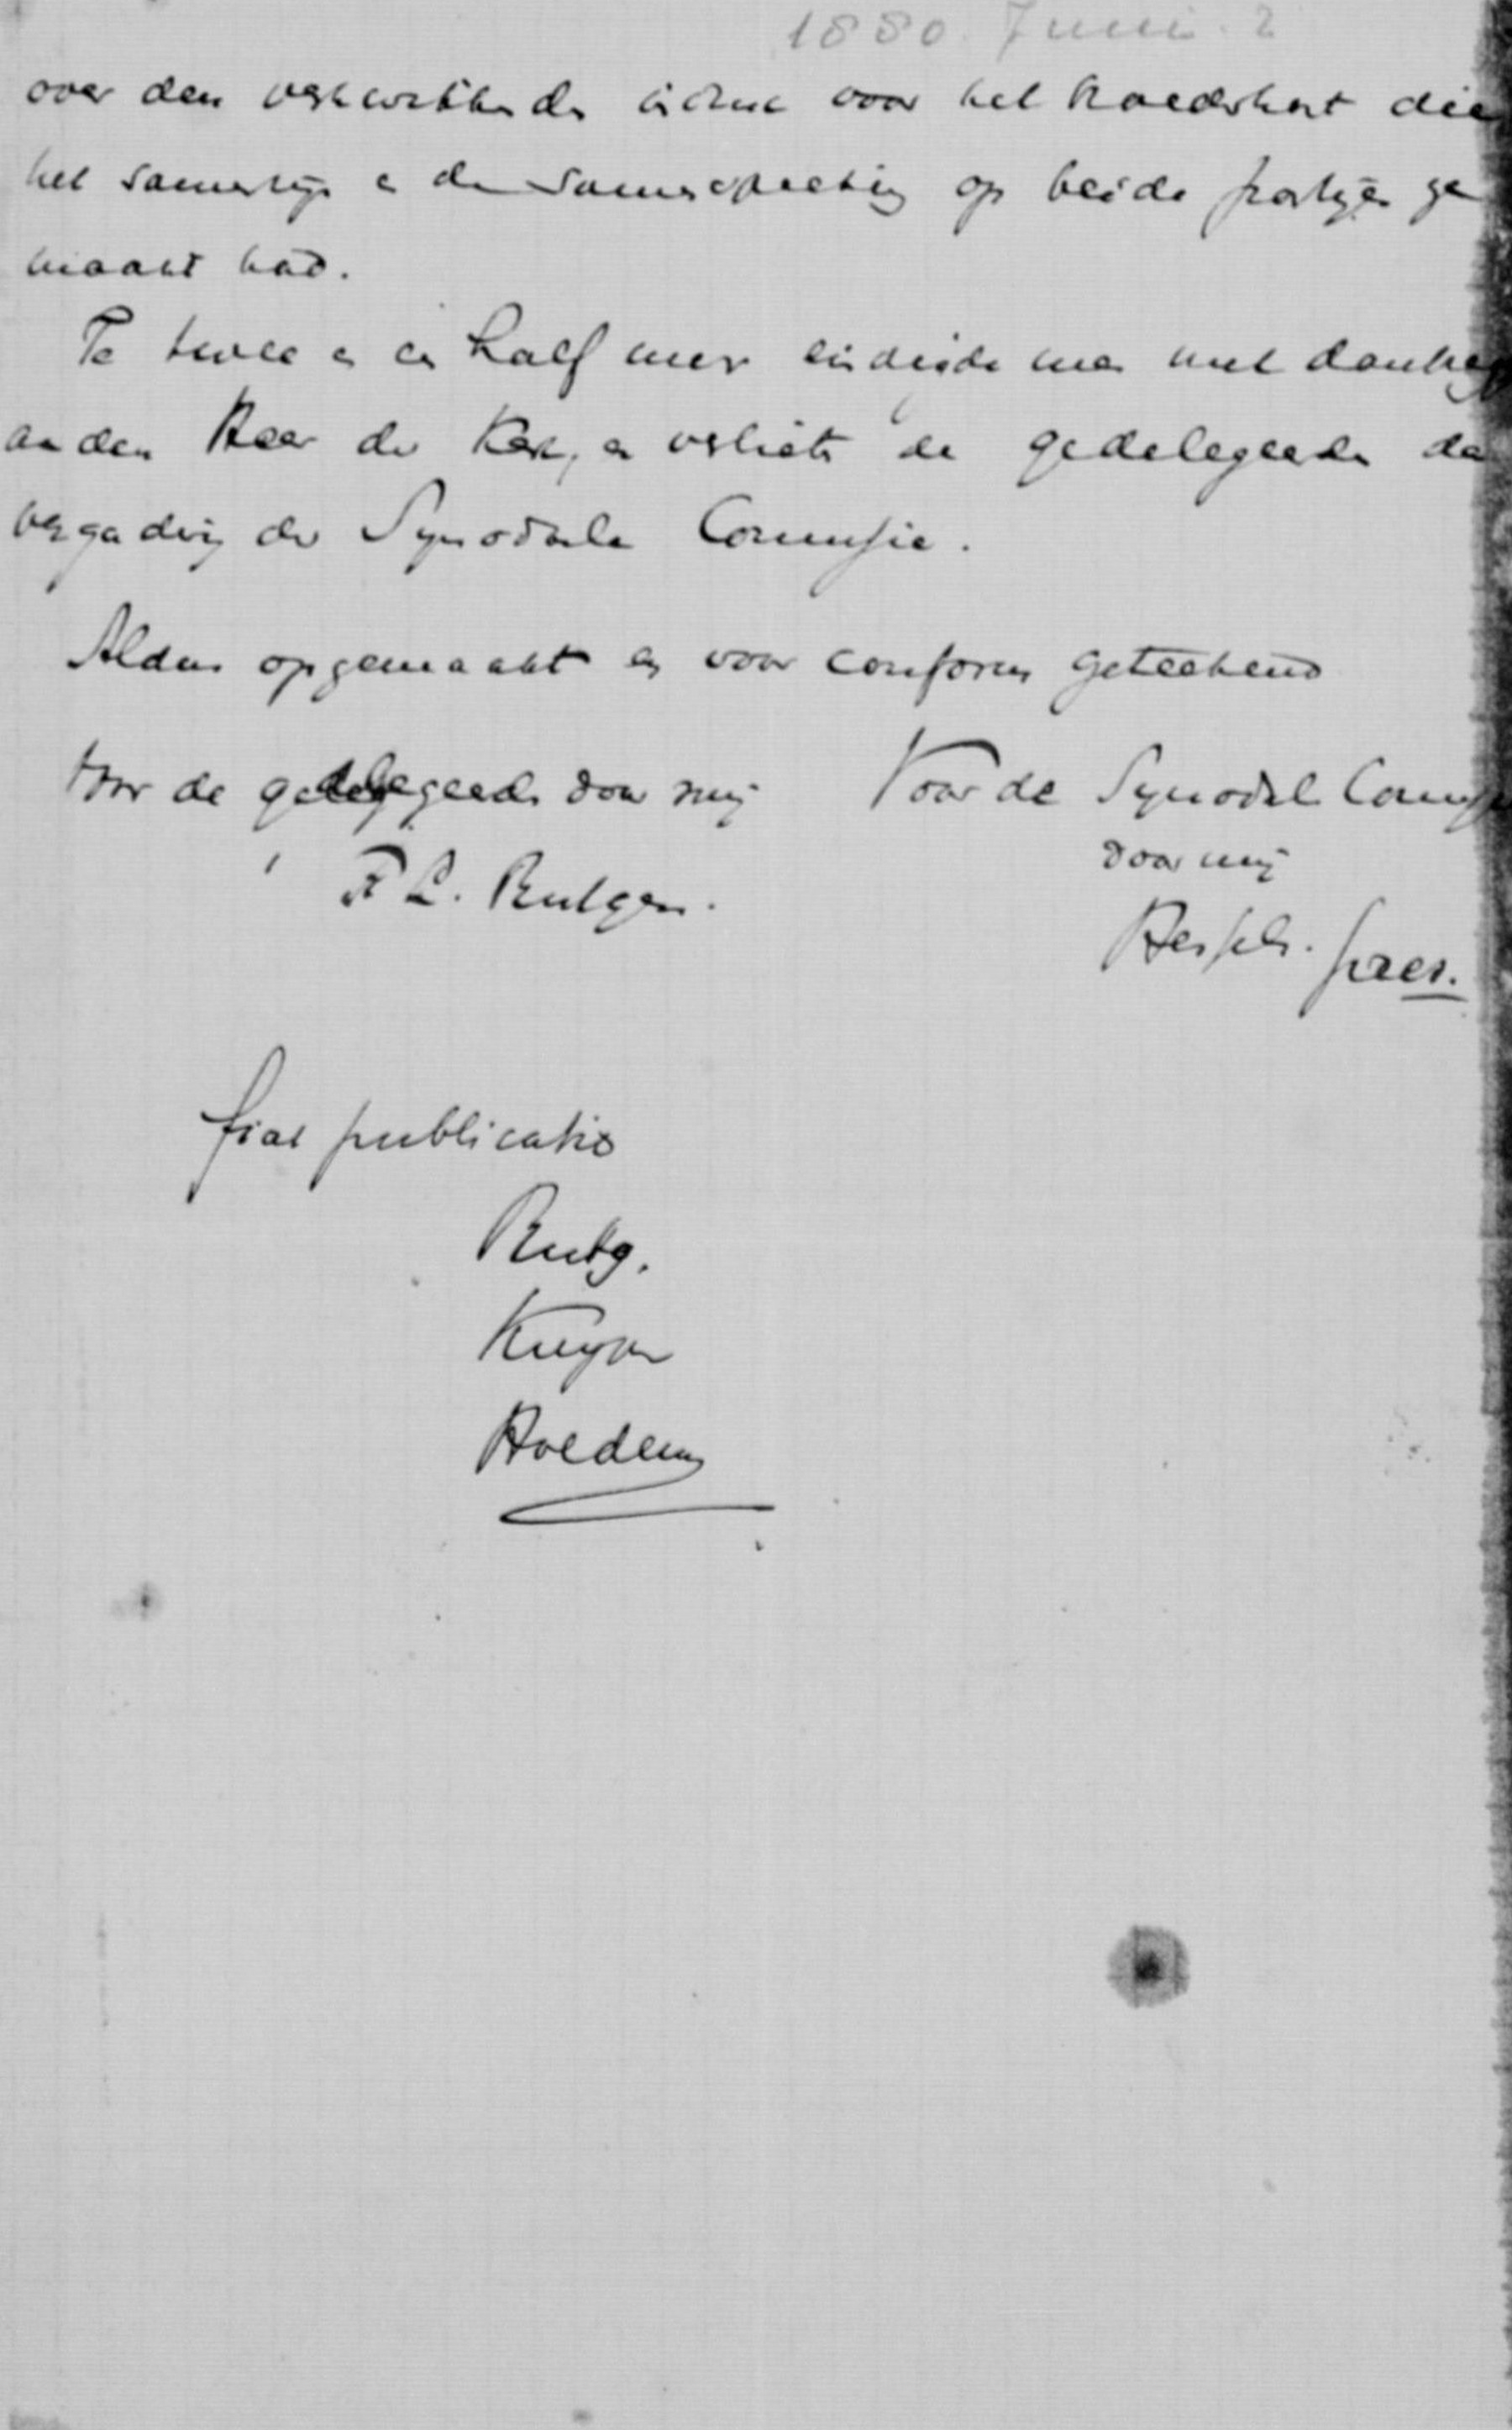 1880. Juni. 2
over den verkwikkenden indruk voor het broederhart dien
het samenzijn en de samenspreking op beide partijen ge
maakt had.
Te twee en een half uur eindigde men met dankzeg
aan den Heer der Kerk, en verlieten de gedelegeerden de
vergadering der Synodale Commissie.
Aldus opgemaakt en voor conform geteekend
Voor de gedelegeerden door mij
F L. Rutgers.
Voor de Synodale Commissie
door mij
pres.
fiat publicatio
Rutg.
Kuyper
Hoedem